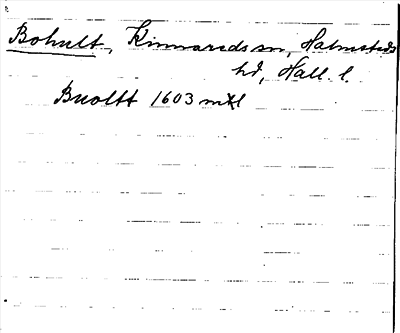 Bohult, Kinnareds sn, Halmstads
hd, Hall. l.
Buoltt 1603 mtl